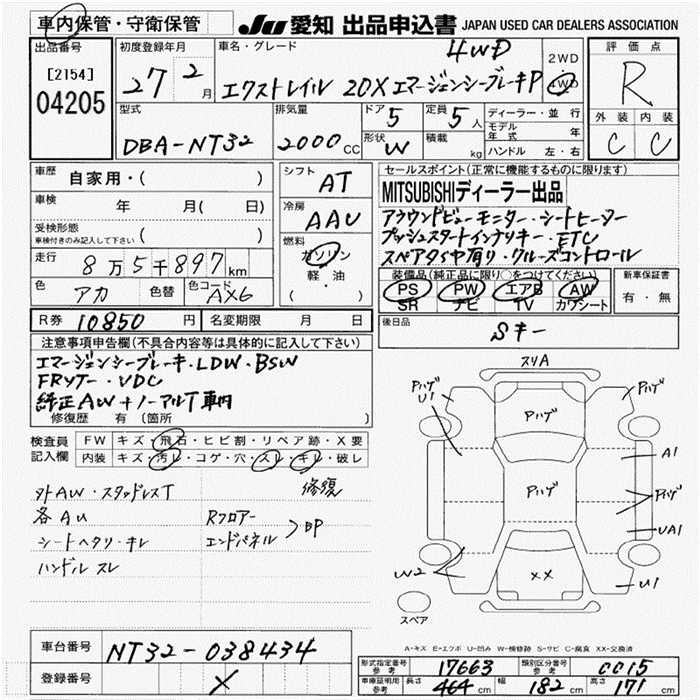 車内保管・守衛保管
JU 愛知 出品申込書 JAPAN USED CAR DEALERS ASSOCIATION
出品番号 [2154] 04205
初度登録年月 27 2月
車名・グレード 4WD
エクストレイル 20X エマージェンシーブレーキP
2WD
4WD
評価点 R
外装 内装
C C
型式 DBA-NT32
排気量 2000 CC
ドア 5
形状 W
定員 5人
積載 kg
ディーラー・並行
モデル年式 年
ハンドル 左・右
車歴 自家用・( )
車検 年 月( 日)
受検形態 ( )
車検付きのみ記入して下さい
走行 8万5千897km
色 アカ 色替 色コード AX6
シフト AT
冷房 AAC
燃料 ガソリン
軽・油
( )
セールスポイント(正常に機能するものに限ります)
MITSUBISHIディーラー出品
アラウンドビューモニター・シートヒーター
プッシュスタートインテリキー・ETC
スペアタイヤ有り・クルーズコントロール
装備品(純正品に限り○をつけてください)
PS PW エアB AW
SR ナビ TV カワシート
新車保証書
有・無
R券 10850 円 名変期限 月 日
後日品 Sキー
注意事項申告欄(不具合内容等は具体的に記入して下さい)
エマージェンシーブレーキ・LDW・BSW
FRソナー・VDC
純正AW+ノーマルT車内
修復歴 有 (箇所 )
検査員記入欄
FW キズ・飛石・ヒビ割・リペア跡・X要
内装 キズ・汚レ・コゲ・穴・スレ・キレ・破レ
外AW・スタッドレスT
各AU
シートヘタリ・キレ
ハンドル スレ
修復
Rフロアー
エンドパネル
>凹
スリA
Pハゲ
U1
Pハゲ
Pハゲ
Pハゲ
A1
Pハゲ
UA1
W2
XX
U1
スペア
A-キズ E-エクボ U-凹み W-補修跡 S-サビ C-腐食 XX-交換済
車台番号 NT32-038434
登録番号 X
形式指定番号 参考 17663 類別区分番号 参考 0015
車庫証明用 参考 長さ 464 cm 幅 182 cm 高さ 171 cm